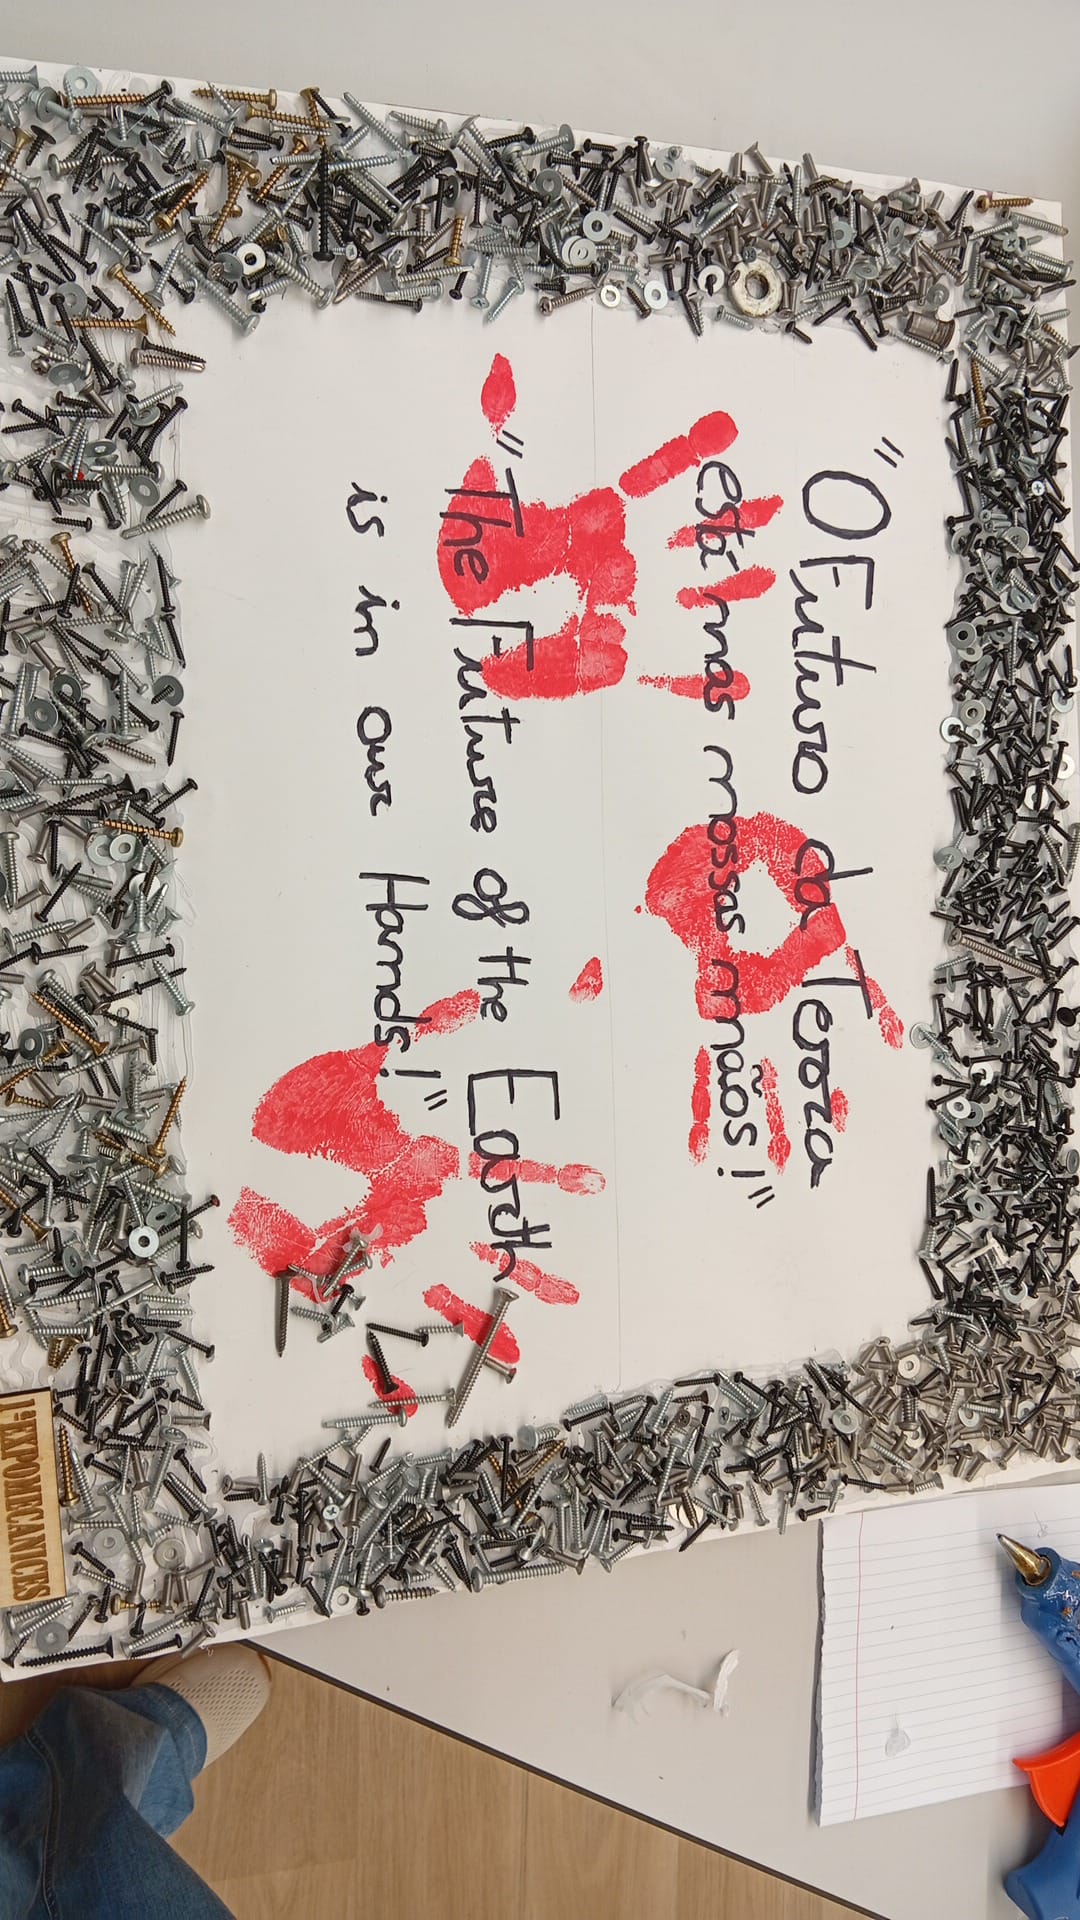 "O Futuro da Terra
está nas nossas mãos!"
"The Future of the Earth
is in our Hands!"
1ª EXPOMECANICES